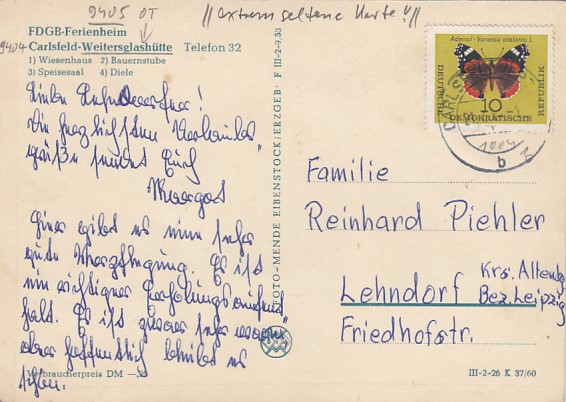 9405 OT //extrem seltene Karte!//
9404
FDGB-Ferienheim
Carlsfeld-Weitersglashütte Telefon 32
1) Wiesenhaus 2) Bauernstube
3) Speisesaal 4) Diele
Die herzlichsten Urlaubs
grüße sendet Euch
Margot
Hier gibt es eine sehr
gute Verpflegung. Es ist
ein richtiger Erholungsaufent
halt. Es ist zwar sehr
aber hoffentlich bleibt es
schön.
Verbraucherpreis DM
FOTO-MENDE EIBENSTOCK/ERZGEB · F III-2-9.53
Admiral · Vanessa atalanta L.
DEUTSCHE
10
DEMOKRATISCHE
REPUBLIK
b
Familie
Reinhard Piehler
Lehndorf Krs. Altenbg
Bez. Leipzig
Friedhofstr.
III-2-26 K 37/60